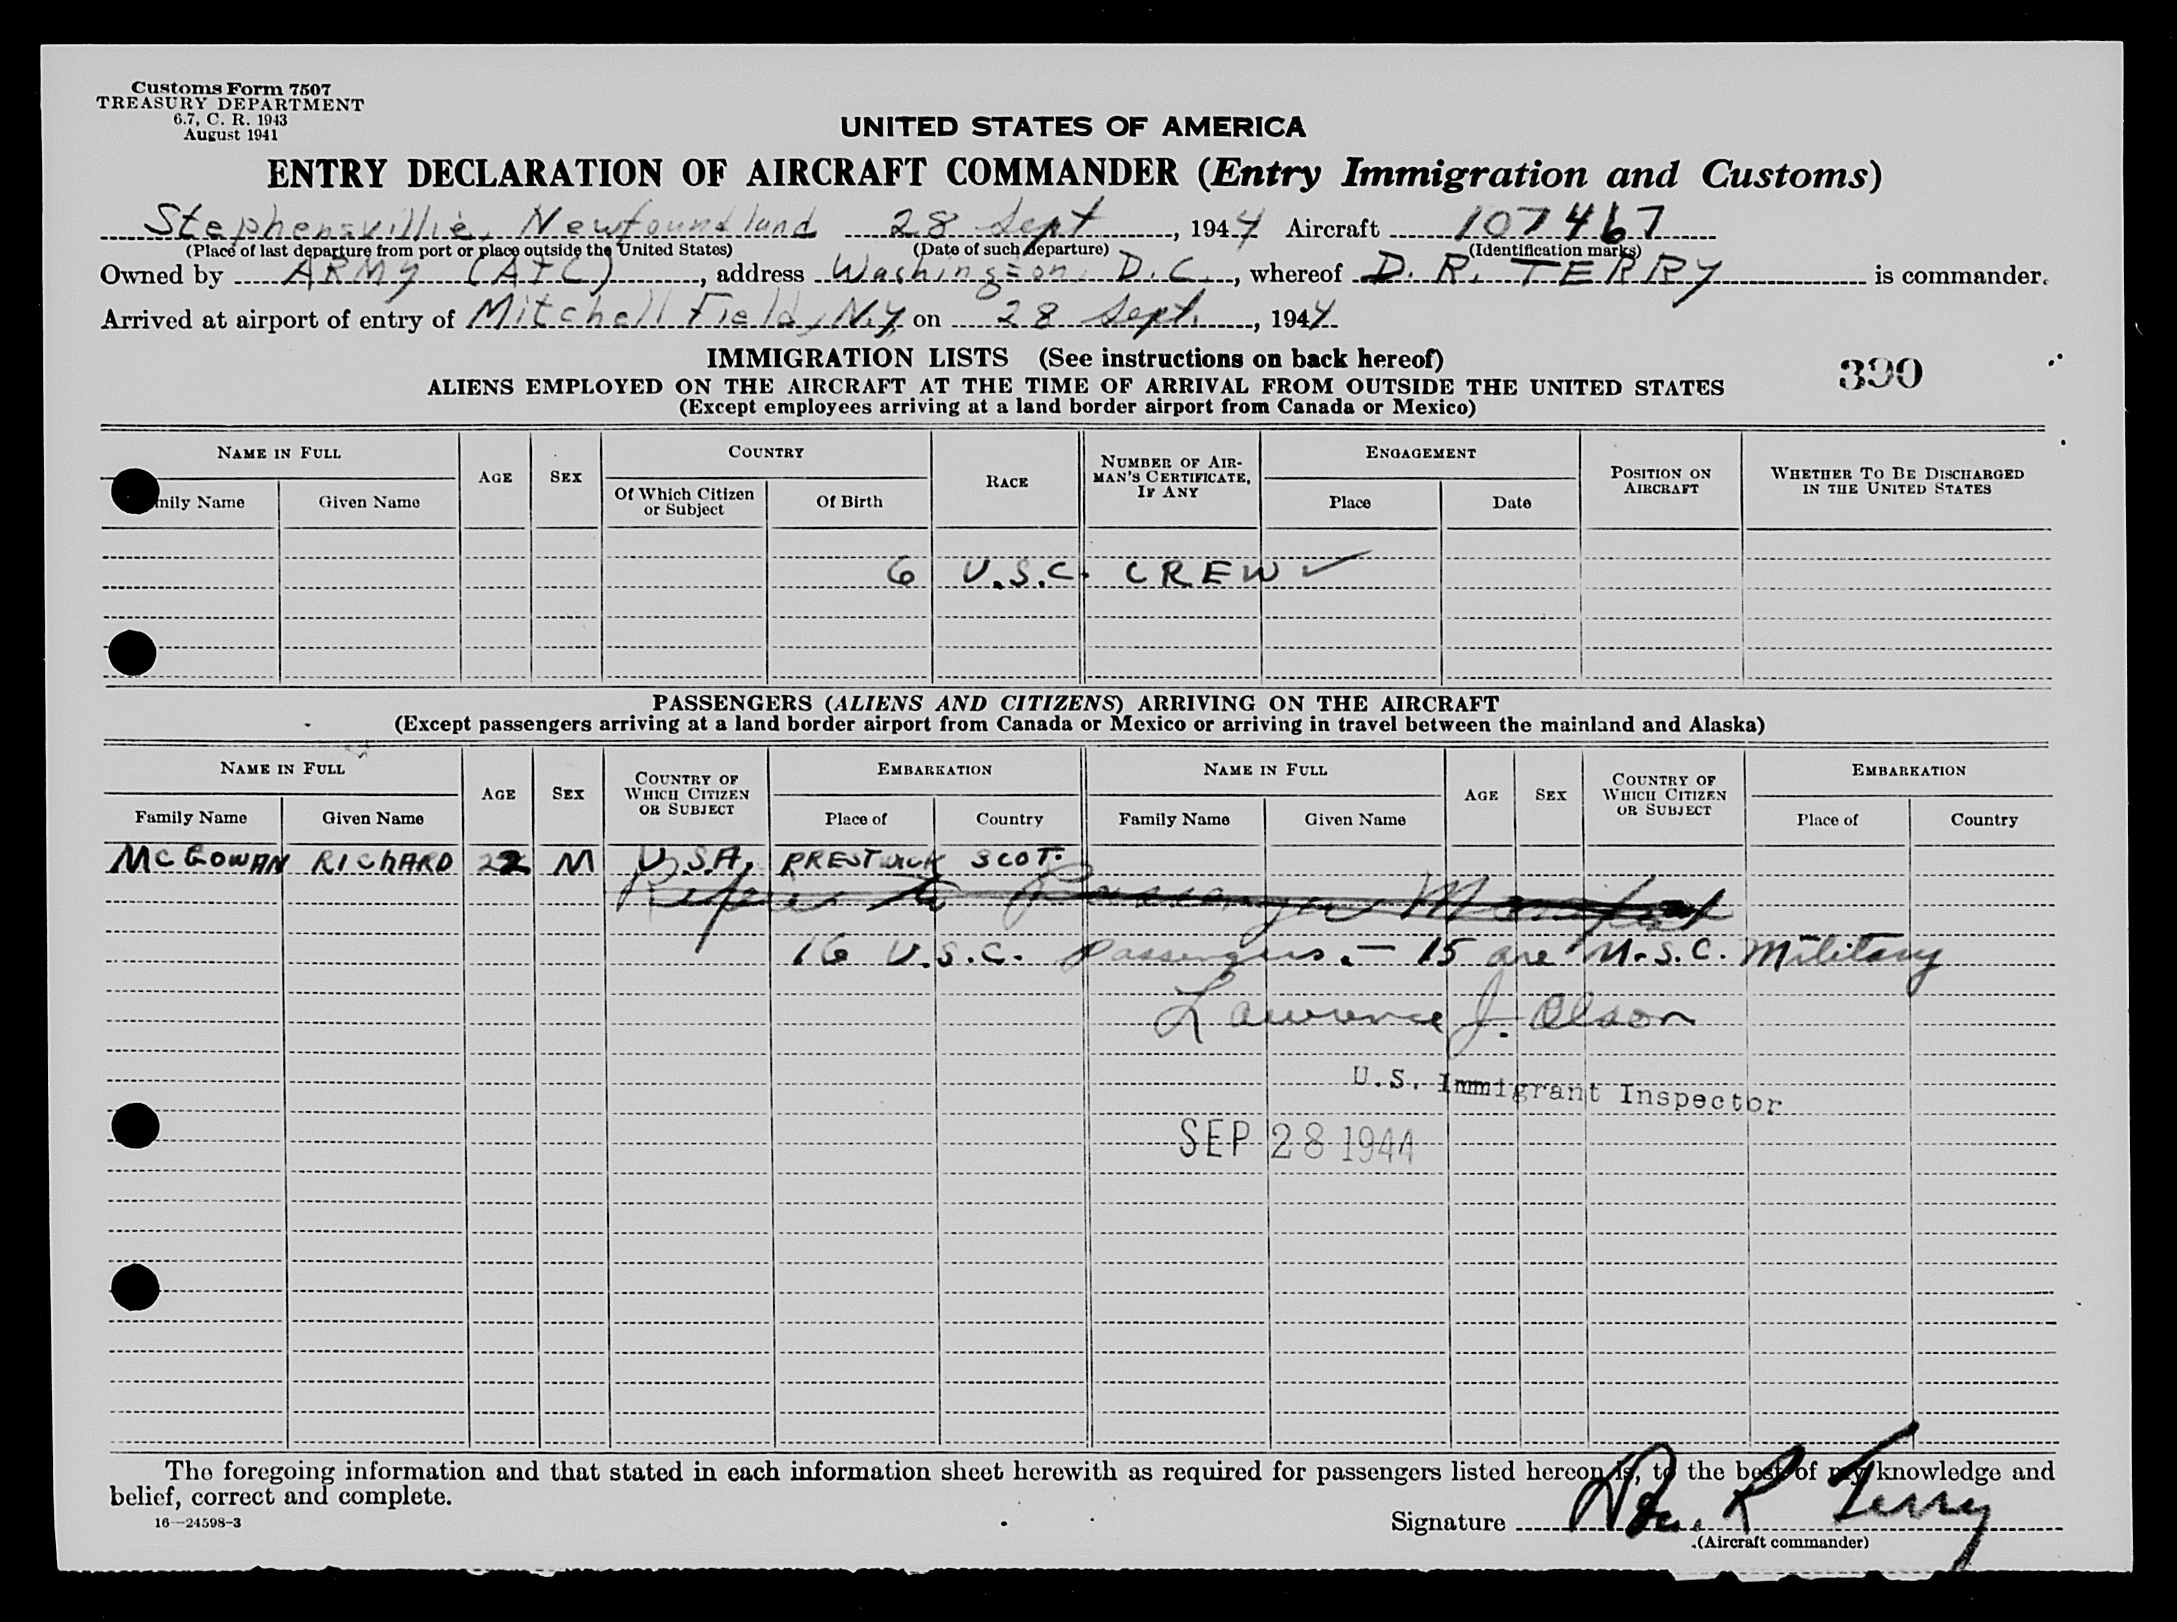 Customs Form 7507
TREASURY DEPARTMENT
6.7, C. R. 1943
August 1941
UNITED STATES OF AMERICA
ENTRY DECLARATION OF AIRCRAFT COMMANDER (Entry Immigration and Customs)
Stephensvillie, Newfoundland 28 Sept, 1944 Aircraft 107467
(Place of last departure from port or place outside the United States) (Date of such departure) (Identification marks)
Owned by ARMy (ATC), address Washington D.C., whereof D. R. TERRY is commander.
Arrived at airport of entry of Mitchell Field, N.y. on 28 Sept., 1944
IMMIGRATION LISTS (See instructions on back hereof)
390
ALIENS EMPLOYED ON THE AIRCRAFT AT THE TIME OF ARRIVAL FROM OUTSIDE THE UNITED STATES
(Except employees arriving at a land border airport from Canada or Mexico)
NAME IN FULL AGE SEX COUNTRY RACE NUMBER OF AIRMAN'S CERTIFICATE, IF ANY ENGAGEMENT POSITION ON AIRCRAFT WHETHER TO BE DISCHARGED IN THE UNITED STATES
mily Name Given Name Of Which Citizen or Subject Of Birth Place Date
6 U.S.C. CREW ✓
PASSENGERS (ALIENS AND CITIZENS) ARRIVING ON THE AIRCRAFT
(Except passengers arriving at a land border airport from Canada or Mexico or arriving in travel between the mainland and Alaska)
NAME IN FULL AGE SEX COUNTRY OF WHICH CITIZEN OR SUBJECT EMBARKATION NAME IN FULL AGE SEX COUNTRY OF WHICH CITIZEN OR SUBJECT EMBARKATION
Family Name Given Name Place of Country Family Name Given Name Place of Country
McGOWAN RIChARD 22 M U.S.A. PRESTWICK SCOT.
Refer to Passenger Manifest
16 U.S.C. passengers. - 15 are U.S.C. Military
Lawrence J. Olson
U.S. Immigrant Inspector
SEP 28 1944
The foregoing information and that stated in each information sheet herewith as required for passengers listed hereon is, to the best of my knowledge and
belief, correct and complete.
16—24598-3
Signature R Terry
(Aircraft commander)